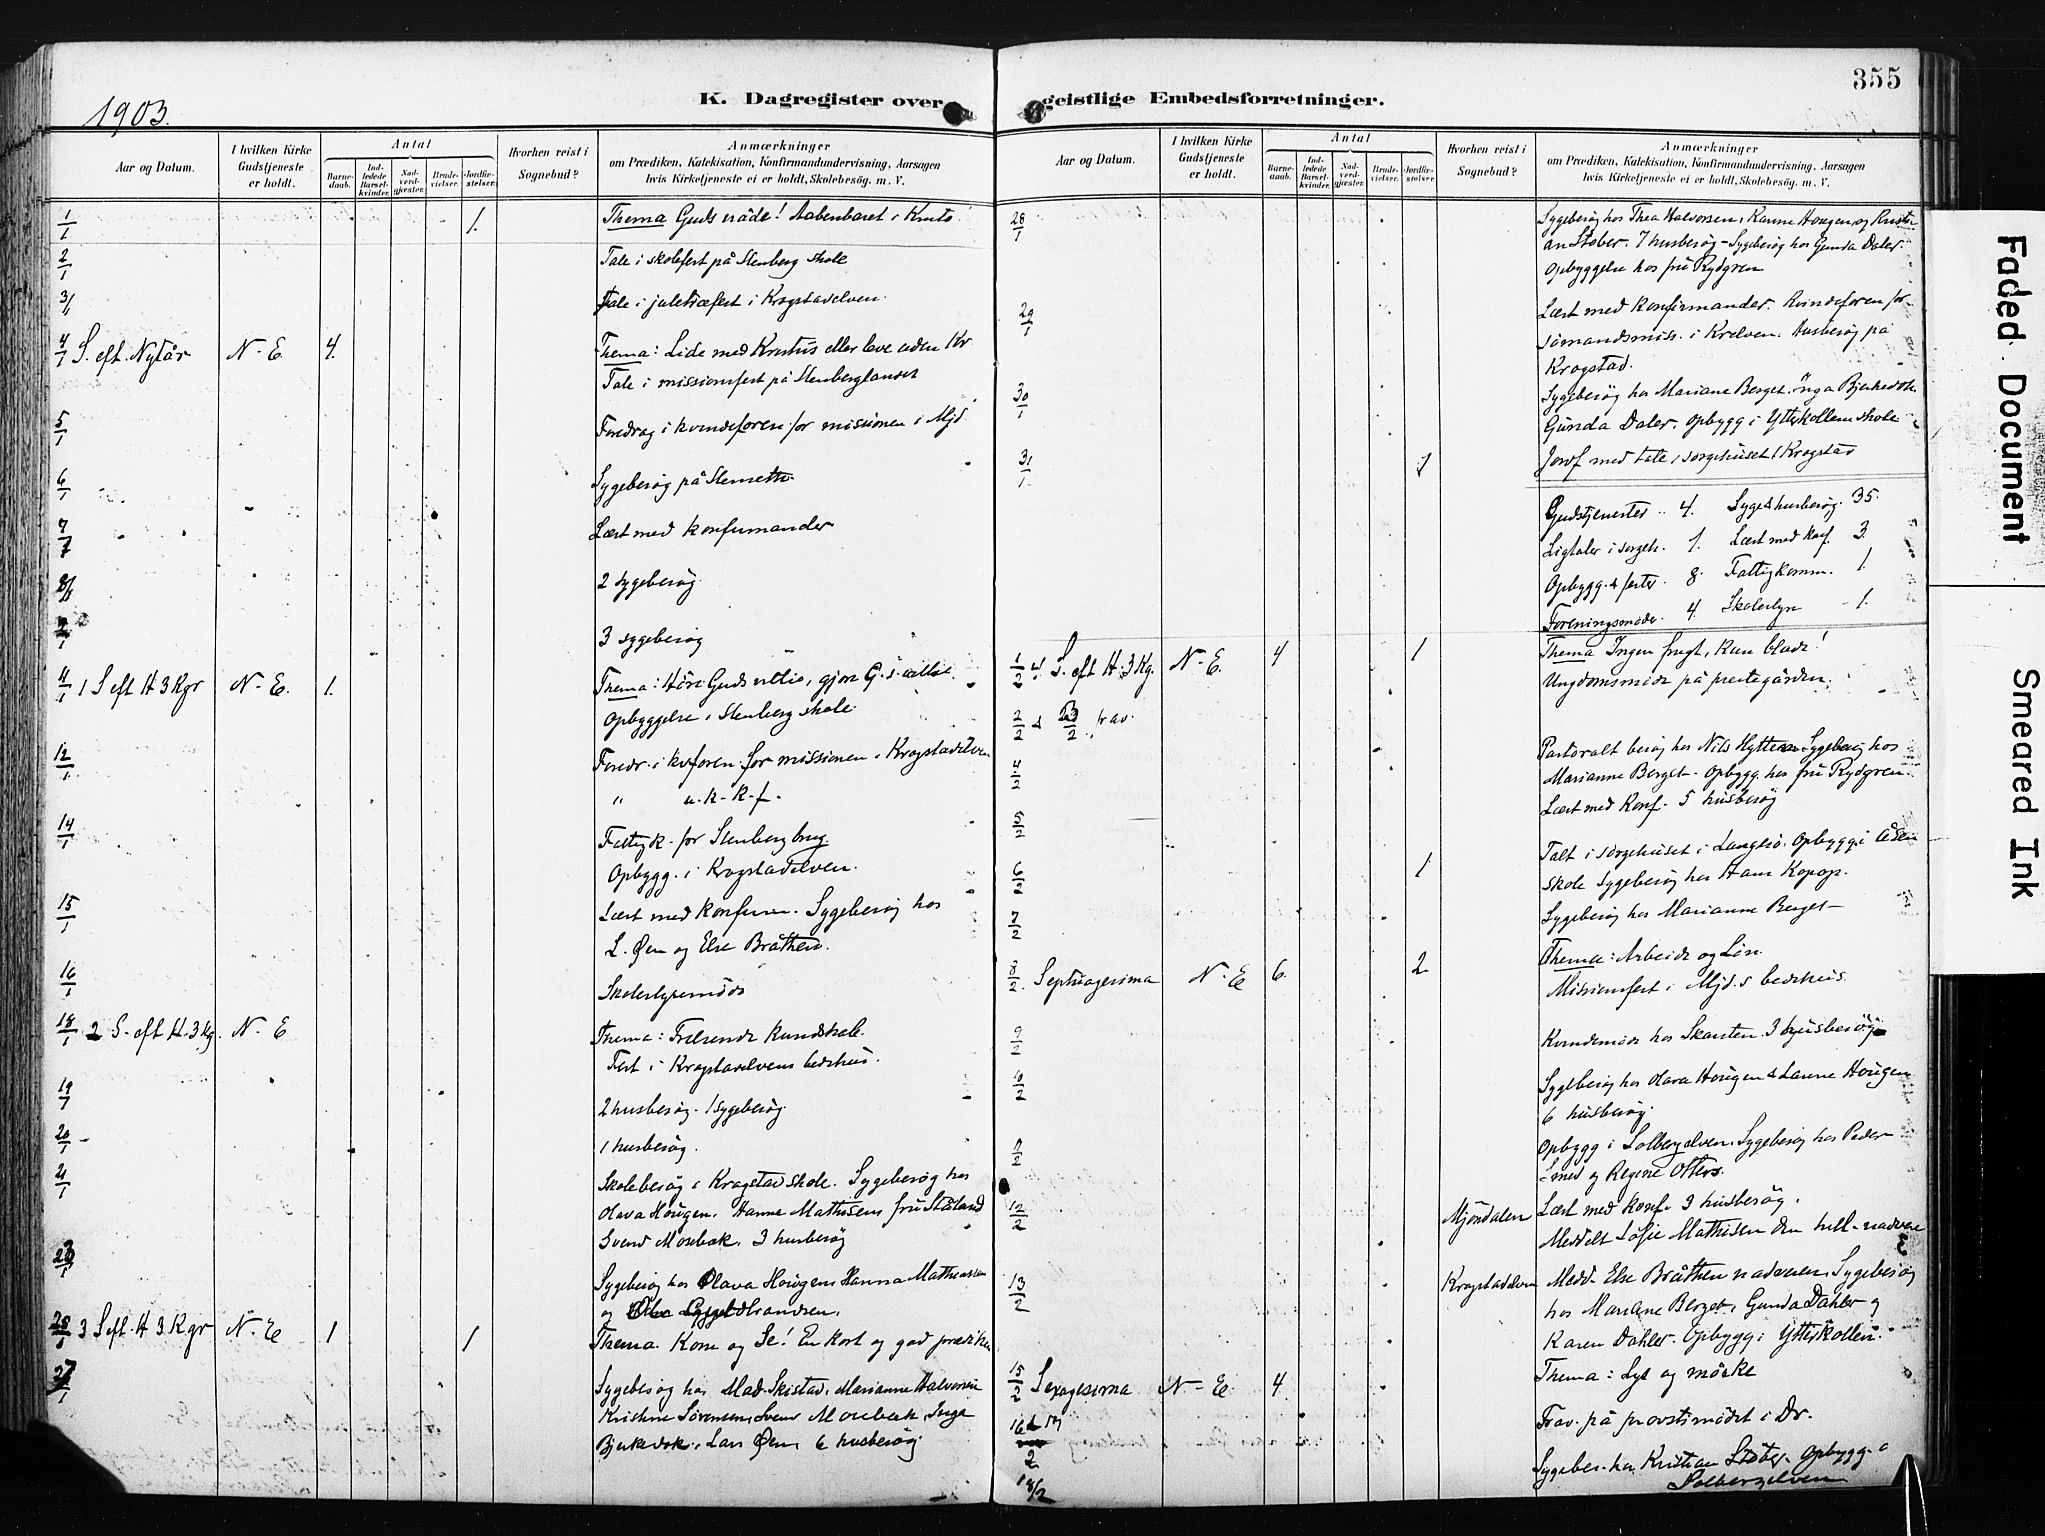 1903.
K. Dagregister over
Aar og Datum.
I hvilken Kirke Gudstjeneste er holdt.
Antal
Barnedaab.
Indledede Barselkvinder.
Nadverdgjæster.
Brudevielser.
Jordfæstelser.
Hvorhen reist i Sognebud?
Anmærkninger
om Prædiken, Katekisation, Konfirmandundervisning, Aarsagen
hvis Kirketjeneste ei er holdt, Skolebesøg. m. V.
1/1 1. Thema Guds nåde! Aabenbaret i
2/1 Tale i skolefest på Stenberg skole
3/1 Tale i juletræfest i Krogstadelven.
4/1 S. eft. Nytår N. E. 4. Thema: Lide med Kristus eller leve uden Kr.
Tale i missionsfest på
5/1 Foredrag i kvindeforen. for missionen i Mjd
6/1 Sygebesøg på
7/1 Læst med konfirmander
8/1 2 sygebesøg.
3 sygebesøg
11/1 1 S eft H 3 Kgr N. E. 1. Thema: Høre Guds villie, gjøre G. s. villie.
Opbyggelse i Stenberg skole.
12/1 Foredr. i kvforen. for missionen i Krogstadelven
" u. k. k. f.
14/1 Fattigk. for Stenberg brug.
Opbygg. i Krogstadelven.
15/1 Læst med konfirm. Sygebesøg hos
L. Øen og Else Bråthen.
16/1 Skolestyremøde
18/1 2 S. eft H. 3 Kg. N. E Thema: Frelsende kundskab.
Fest i Krogstadelvens bedehus.
19/1 2 husbesøg. 1 sygebesøg.
20/1 1 husbesøg.
21/1 Skolebesøg i Krogstad skole. Sygebesøg hos
Olava Hougen. Hanne Mathisens fru
Svend Mosebæk. 3 husbesøg
23/1 Sygebesøg hos Olava Hougen Hanna Mathiassen
og
25/1 3 S eft. H 3 Kgr N. E 1 1 Thema. Kom og Se! En kort og god prædiken
27/1 Sygebesøg hos Mad. Skistad, Marianne Halvorsen
Kristine Sørensen, Svend Mosebæk, Inga
Bjerkedok. Lars Øen. 6 husbesøg.
355
geistlige Embedsforretninger.
Aar og Datum.
I hvilken Kirke Gudstjeneste er holdt.
Antal
Barnedaab.
Indledede Barselkvinder.
Nadverdgjæster.
Brudevielser.
Jordfæstelser.
Hvorhen reist i Sognebud?
Anmærkninger
om Prædiken, Katekisation, Konfirmandundervisning, Aarsagen
hvis Kirketjeneste ei er holdt, Skolebesøg. m. V.
28/1 Sygebesøg hos Thea Halvorsen, Karine Hougen og Kristi-
an Støber. 7 husbesøg - Sygebesøg hos Gunda Daler.
Opbyggelse hos fru Rydgren
29/1 Læst med konfirmander. Kvindeforen for
sømandsmiss. i Krelven. Husbesøg på
Krogstad.
30/1 Sygebesøg hos Mariane Berget. Inga Bjerkedok
Gunda Daler. opbygg i Ytterkollen skole
31/1 1 Jordf med tale i sørgehuset i Krogstad
Gudstjenester 4. Syge & husbesøg. 35.
Ligtaler i sørgeh. 1. Læst med konf. 3.
Opbygg. & fester 8. Fattigkomm. 1.
Foreningsmøder. 4. Skolestyr - 1.
1/2 4. S. eft H. 3 Kg. N. E. 4 1 Thema Ingen frugt, kun blade!
Ungdomsmøde på prestegården.
2/2 & 3/2 frav.
4/2 Pastoralt besøg hos Nils Hytten Sygebesøg hos
Marianne Berget. Opbygg. hos fru Rydgren.
5/2 Læst med konf. 5 husbesøg
6/2 1 Talt i sørgehuset i Langlø. Opbygg. i Åsen
skole Sygebesøg hos Hans
7/2 Sygebesøg hos Marianne Berget
8/2 Septuagesima N. E 6. 2. Thema: Arbeide og Løn.
Missionsfest i Mjd.s bedehus.
9/2 Kvindemøde hos Skarsten. 3 husbesøg
10/2 Sygebesøg hos Olava Hougen & Laurine Hougen
6 husbesøg.
Opbygg i Solbergelven. Sygebesøg hos Peder
Smed og Regine Otters.
12/2 Mjøndalen Læst med konf. 3 husbesøg.
Meddelt Sofie Mathisen den hell. nadvere
13/2 Krogstadelven Medd. Else Bråthen nadveren. Sygebesøg
hos Mariane Berget. Gunda Dahler og
Karen Dahler. Opbygg i Ytterkollen.
15/2 Sexagesima N. E. 4. Thema: Lys og mørke
Frav. på provstimødet i Dr.
18/2 Sygebes. hos Kristian Støber. Opbygg. i
Solbergelven
Faded Document
Smeared Ink